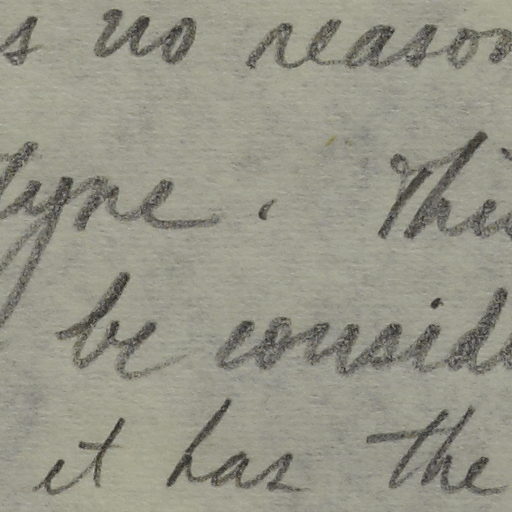 s no reason
tyne. This
be consid
it has the